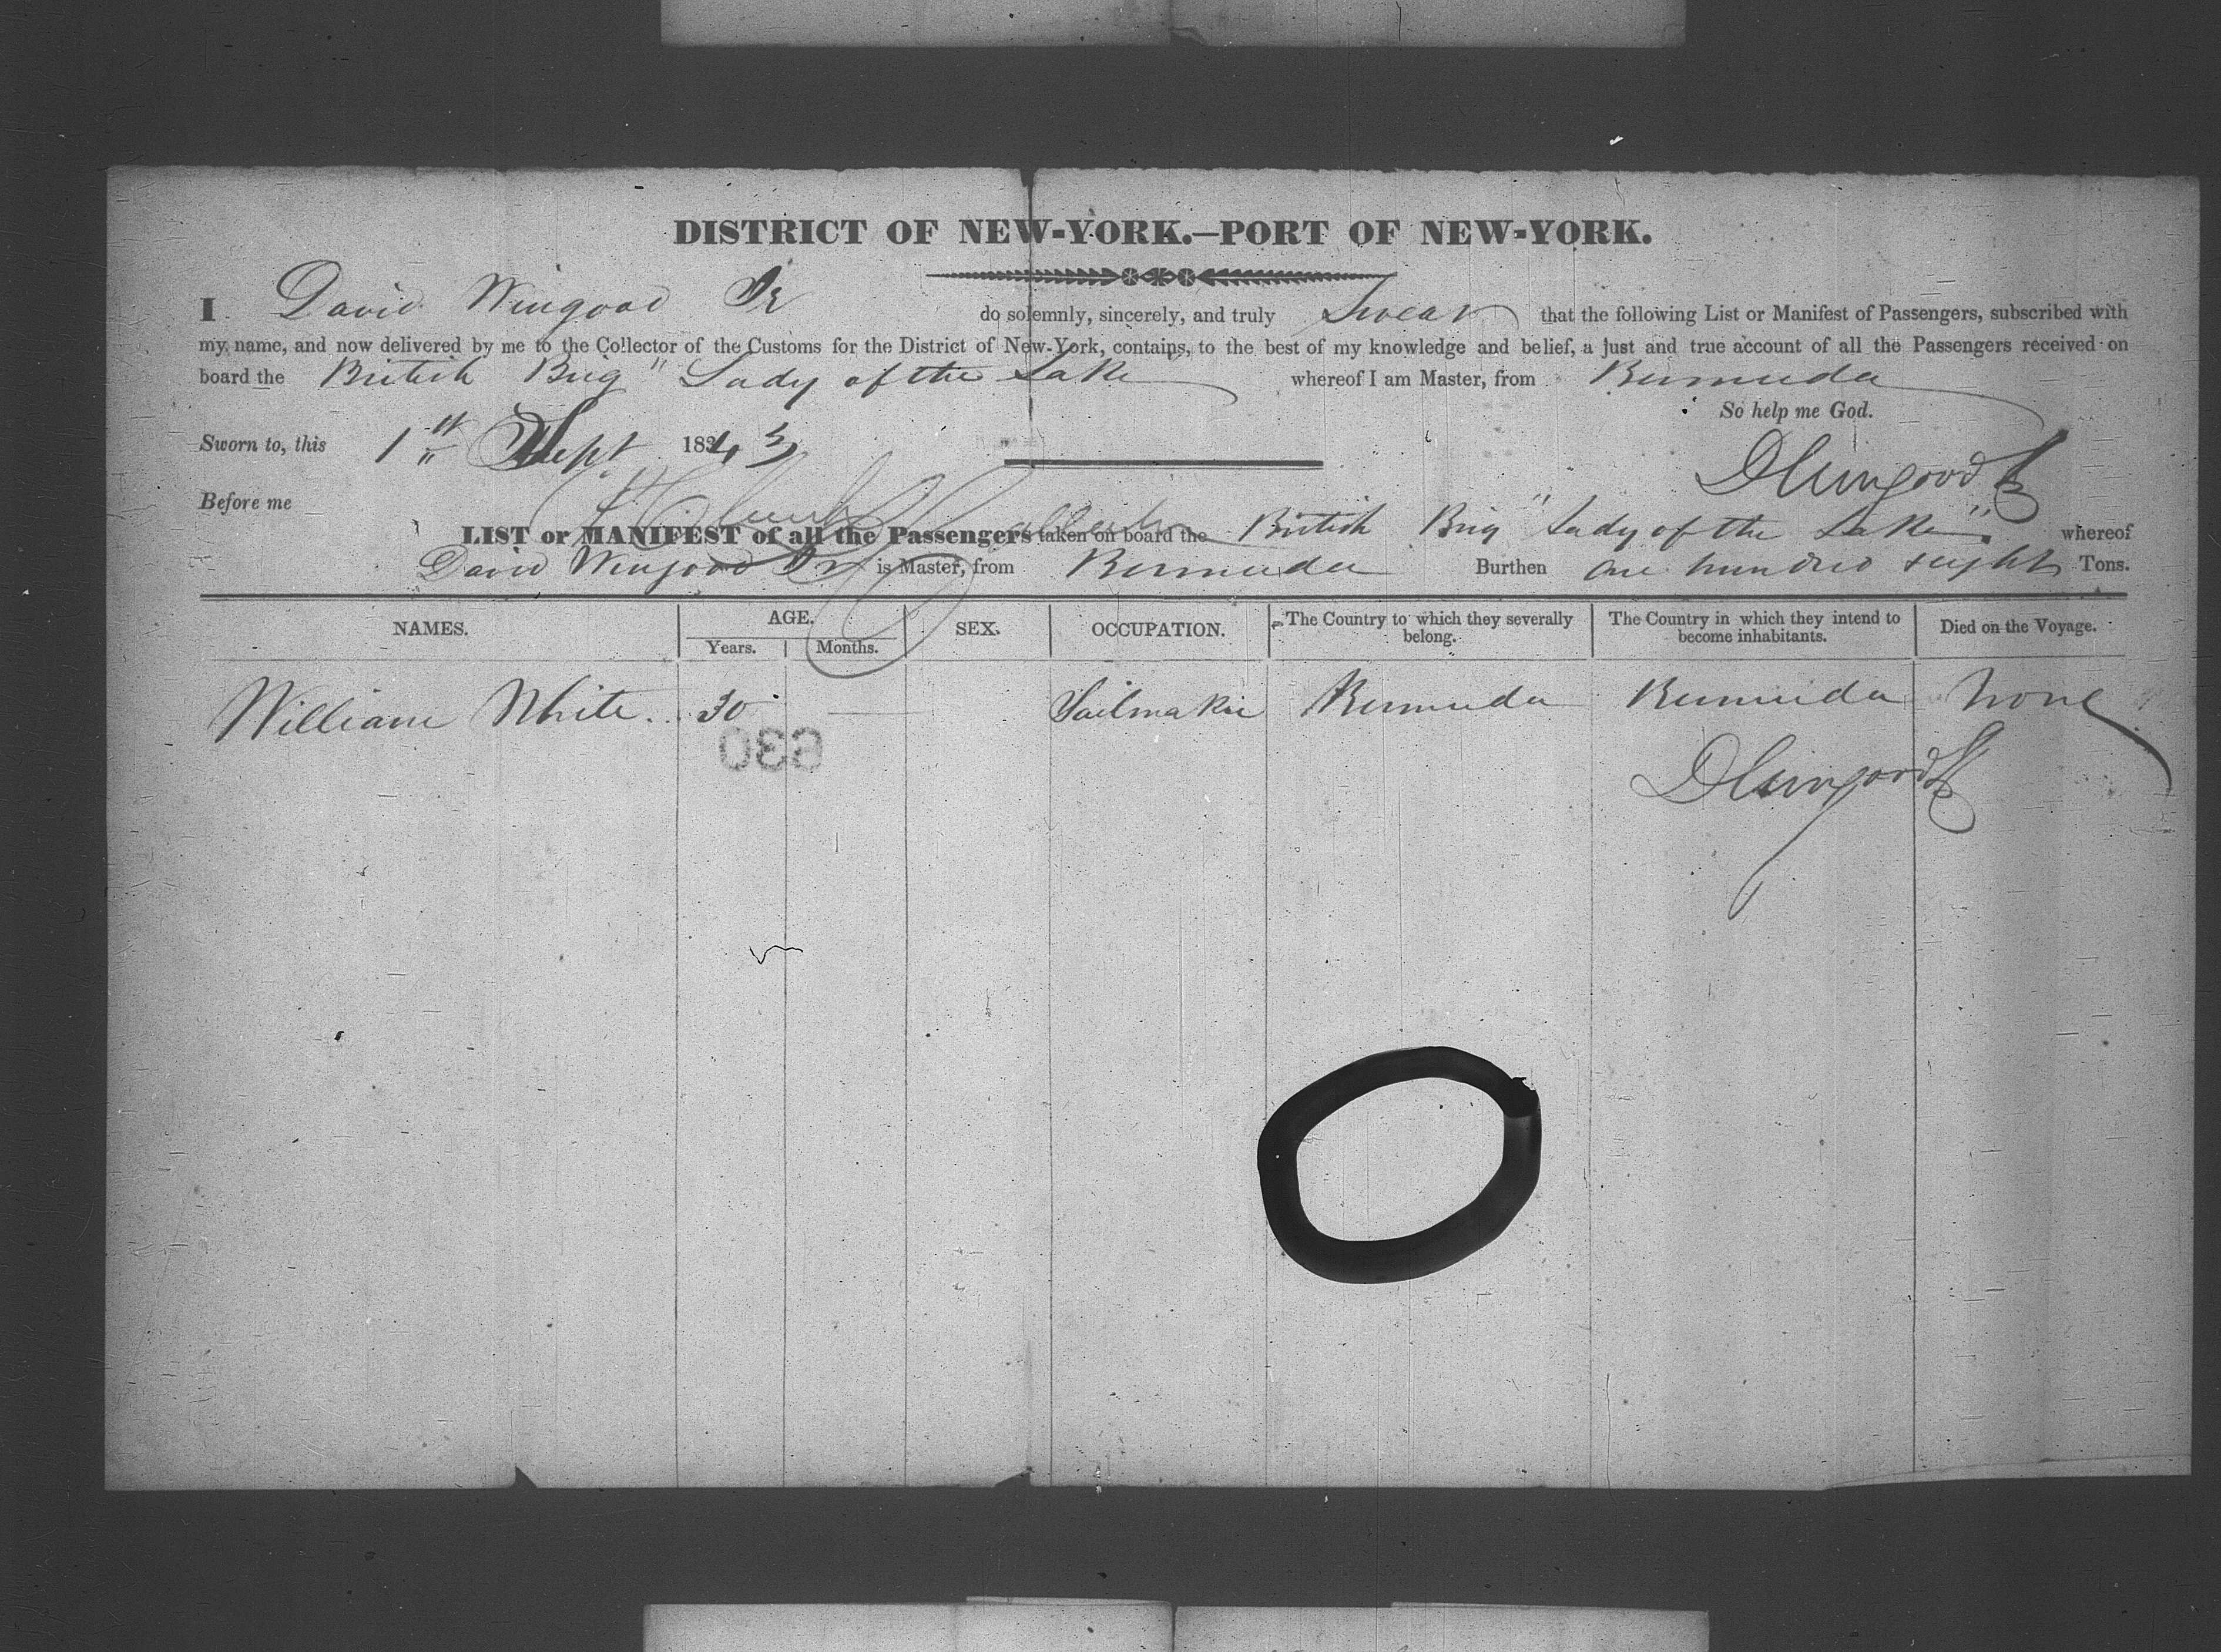 DISTRICT OF NEW-YORK.—PORT OF NEW-YORK.
I David Wingood Jr do solemnly, sincerely, and truly Swear that the following List or Manifest of Passengers, subscribed with
my name, and now delivered by me to the Collector of the Customs for the District of New-York, contains, to the best of my knowledge and belief, a just and true account of all the Passengers received on
board the British Brig "Lady of the Lake whereof I am Master, from Bermuda
So help me God.
Sworn to, this 1st Sept 1843
D Wingood Jr
Before me
LIST or MANIFEST of all the Passengers taken on board the British Brig "Lady of the Lake" whereof
David Wingood Jr is Master, from Bermuda Burthen One hundred & eight Tons.
NAMES. AGE. SEX. OCCUPATION. The Country to which they severally belong. The Country in which they intend to become inhabitants. Died on the Voyage.
Years. Months.
William White 30 — Sailmaker Bermuda Bermuda None
630
D Wingood Jr